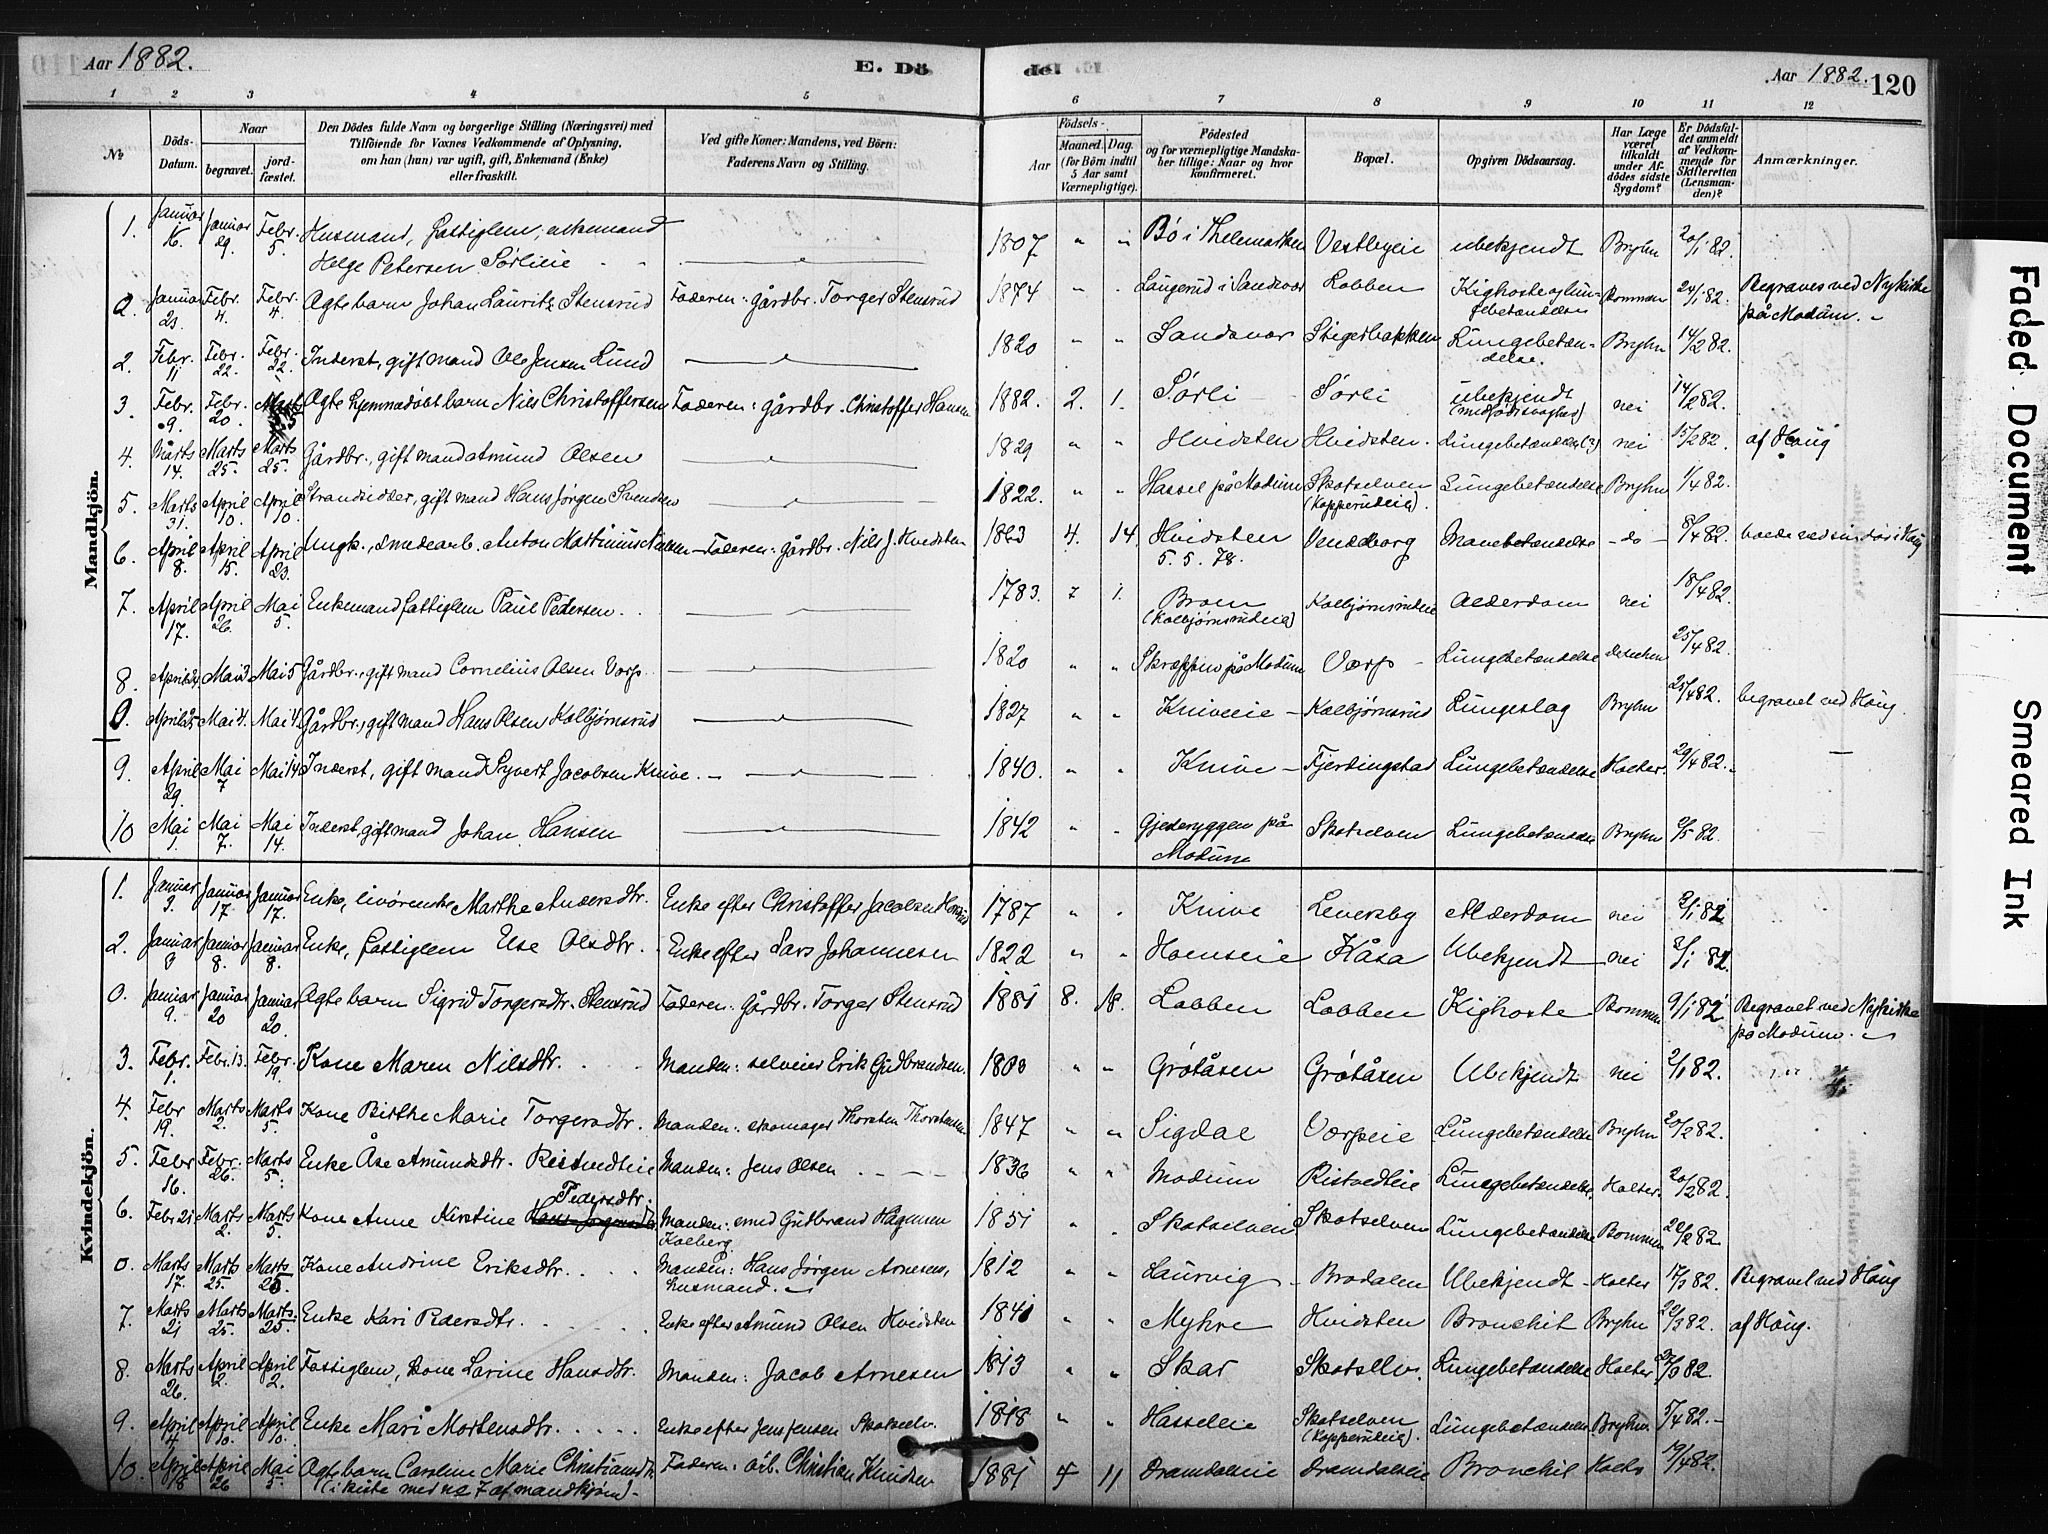 Aar 1882.
E. Dö
de.
Aar 1882.
120
1 2 3 4 5 6 7 8 9 10 11 12
No
Döds-Datum.
Naar
begravet.
jord-fæstet.
Den Dödes fulde Navn og borgerlige Stilling (Næringsvei) med
Tilföiende for Voxnes Vedkommende af Oplysning,
om han (hun) var ugift, gift, Enkemand (Enke)
eller fraskilt.
Ved gifte Koner: Mandens, ved Börn:
Faderens Navn og Stilling.
Aar
Födsels-
Maaned. Dag.
(for Börn indtil
5 Aar samt
Værnepligtige).
Födested
og for værnepligtige Mandska-
ber tillige: Naar og hvor
konfirmeret.
Bopæl.
Opgiven Dödsaarsag.
Har Læge
været
tilkaldt
under Af-
dödes sidste
Sygdom?
Er Dödsfal-
det anmeldt
af Vedkom-
mende for
Skifteretten
(Lensman-
den)?
Anmærkninger.
Mandkjön.
1. Januar 16. Januar 29. Febr. 5. Husmand, fattiglem, enkemand Helge Petersen Sørlieie 1807 " " Bø i Thelemarken Vestbyeie ubekjendt Bryhn 20/1 82.
0. Januar 23. Febr. 4. Febr. 4. Ægte barn Johan Lauritz Stensrud Faderen: gårdbr. Torger Stensrud 1874 " " Langerud i Sandsvær Lobben Kighoste og lungebetændelse Bommen 24/1 82. Begraves ved Nykirke på Modum.
2. Febr. 11 Febr. 22. Febr. 22. Inderst, gift mand Ole Jensen Lund 1820 " " Sandsvær Stigersbakken Lungebetændelse. Bryhn 14/2 82.
3. Febr. 9. Febr. 20. Marts Ægte hjemmedøbt barn Nils Christoffersen Faderen: gårdbr. Christoffer Hansen 1882. 2. 1. Sørli Sørli ubekjendt nei 14/2 82.
4. Marts 14. Marts 25. Marts 25. Gårdbr., gift mand Amund Olsen 1829 " " Hvidsten Hvidsten. Lungebetændelse nei 15/2 82. af Houg
5. Marts 31. April 10. April 10. Strandsidder, gift mand Hans Jørgen Svendsen 1822. " " Hassel på Modum Skotselven (Kopperudeie). Lungebetændelse Bryhn 1/4 82.
6. April 8. April 15. April 23. Ungk., smedearb. Anton Martinius Nielsen Faderen: gårdbr. Nils J. Hvidsten 1863 4. 14. Hvidsten 5. 5. 78. Venddborg Mavebetændelse do 8/4 82.
7. April 17. April 26. Mai 5. Enkemand fattiglem Paul Pedersen 1783. 7 1. Broen (Kolbjørnsrudeie) Kolbjørnsrudeie Alderdom nei 18/4 82.
8. April Mai 3 Mai 5 Gårdbr., gift mand Cornelius Olsen Vorp 1820 " " Skræppen på Modum Vorp Lungebetændelse 25/4 82.
0. April 25. Mai 4. Mai 4. Gårdbr., gift mand Hans Olsen Kolbjørnsrud 1827 " " Kniveeie Kolbjørnsrud Lungeslag Bryhn 25/4 82. begravet ved Houg.
9. April 29. Mai 7 Mai 14 Inderst, gift mand Syvert Jacobsen Knive 1840. " " Knive Fjerdingstad Lungebetændelse Holter. 29/4 82.
10 Mai 1. Mai 7. Mai 14. Inderst, gift mand Johan Hansen 1842 " " Gjederyggen på Modum Skotselven Lungebetændelse Bryhn 2/5 82.
Kvindekjön.
1. Januar 3. Januar 17. Januar 17. Enke, livørenske Marthe Andersdtr. Enke efter Christoffer Jacobsen 1787 " " Knive Leversby Alderdom nei 2/1 82
2. Januar 3 Januar 8. Januar 8. Enke, fattiglem Else Olsdtr. Enke efter Lars Johannesen 1822 " " Hoenseie Kåsa Ubekjendt nei 3/1 82.
0. Januar 9. Januar 20 Januar 20. Ægte barn Sigrid Torgersdtr. Stensrud Faderen: Gårdbr. Torger Stensrud 1881 8. 18. Lobben Lobben Kighoste Bommen 9/1 82 Begravet ved Nykirke på Modum.
3. Febr. 1. Febr. 13. Febr. 19. Kone Maren Nilsdtr. Manden: selveier Erik Gudbrandsen. " " Grøtåsen Grøtåsen Ubekjendt nei 2/1 82.
4. Febr 19. Marts 2. Marts 5. Kone Birthe Marie Torgersdtr. Manden: skomager Thorsten Thorstensen 1847 " " Sigdal Vorpeie Lungebetændelse Bryhn 20/2 82.
5. Febr 16. Febr. 26. Marts 5. Enke Åse Amundsdtr. Ristvedteie Manden: Jens Olsen 1836 " " Modum Ristvedteie Lungebetændelse Holter. 20/2 82.
6. Febr 21 Marts 2. Marts 5. Kone Anne Kirstine Pedersdtr. Manden: smed Gudbrand Hågensen Kolberg. 1851 " " Skotselven Skotselven Lungebetændelse Bommen 22/2 82
0. Marts 17. Marts 25. Marts 25 Kone Andrine Eriksdtr. Manden: Hans Jørgen Arnesen, husmand. 1812 " " Laurvig Brodalen Ubekjendt Holter 17/3 82. Begravet ved Houg
7. Marts 21 Marts 25. Marts 25. Enke Kari Pedersdtr. Enke efter Amund Olsen Hvidsten 1841 " " Myhre Hvidsten Bronchit Bryhn 22/3 82. af Houg.
8. Marts 26. April 2. April 2. Fattiglem, Kone Larine Hansdtr. Manden: Jacob Arnesen 1813 " " Skar Skotselv. Lungebetændelse Holter 27/3 82.
9. April 4 April 10. April 10. Enke Mari Mortensdtr. Enke efter Jens Jensen Skotselv. 1818 " " Hasseleie Skotselven (Kopperudeie). Lungebetændelse Bryhn. 5/4 82.
10. April 18 April 26 Mai 5. Ægte barn Caroline Marie Christiansdtr. (i kiste med no 7 af mandkjøn) Faderen: arb. Christian Knudsen 1881 4 11 Dramdaleie Dramdalseie Bronchit 19/4 82.
Faded Document
Smeared Ink